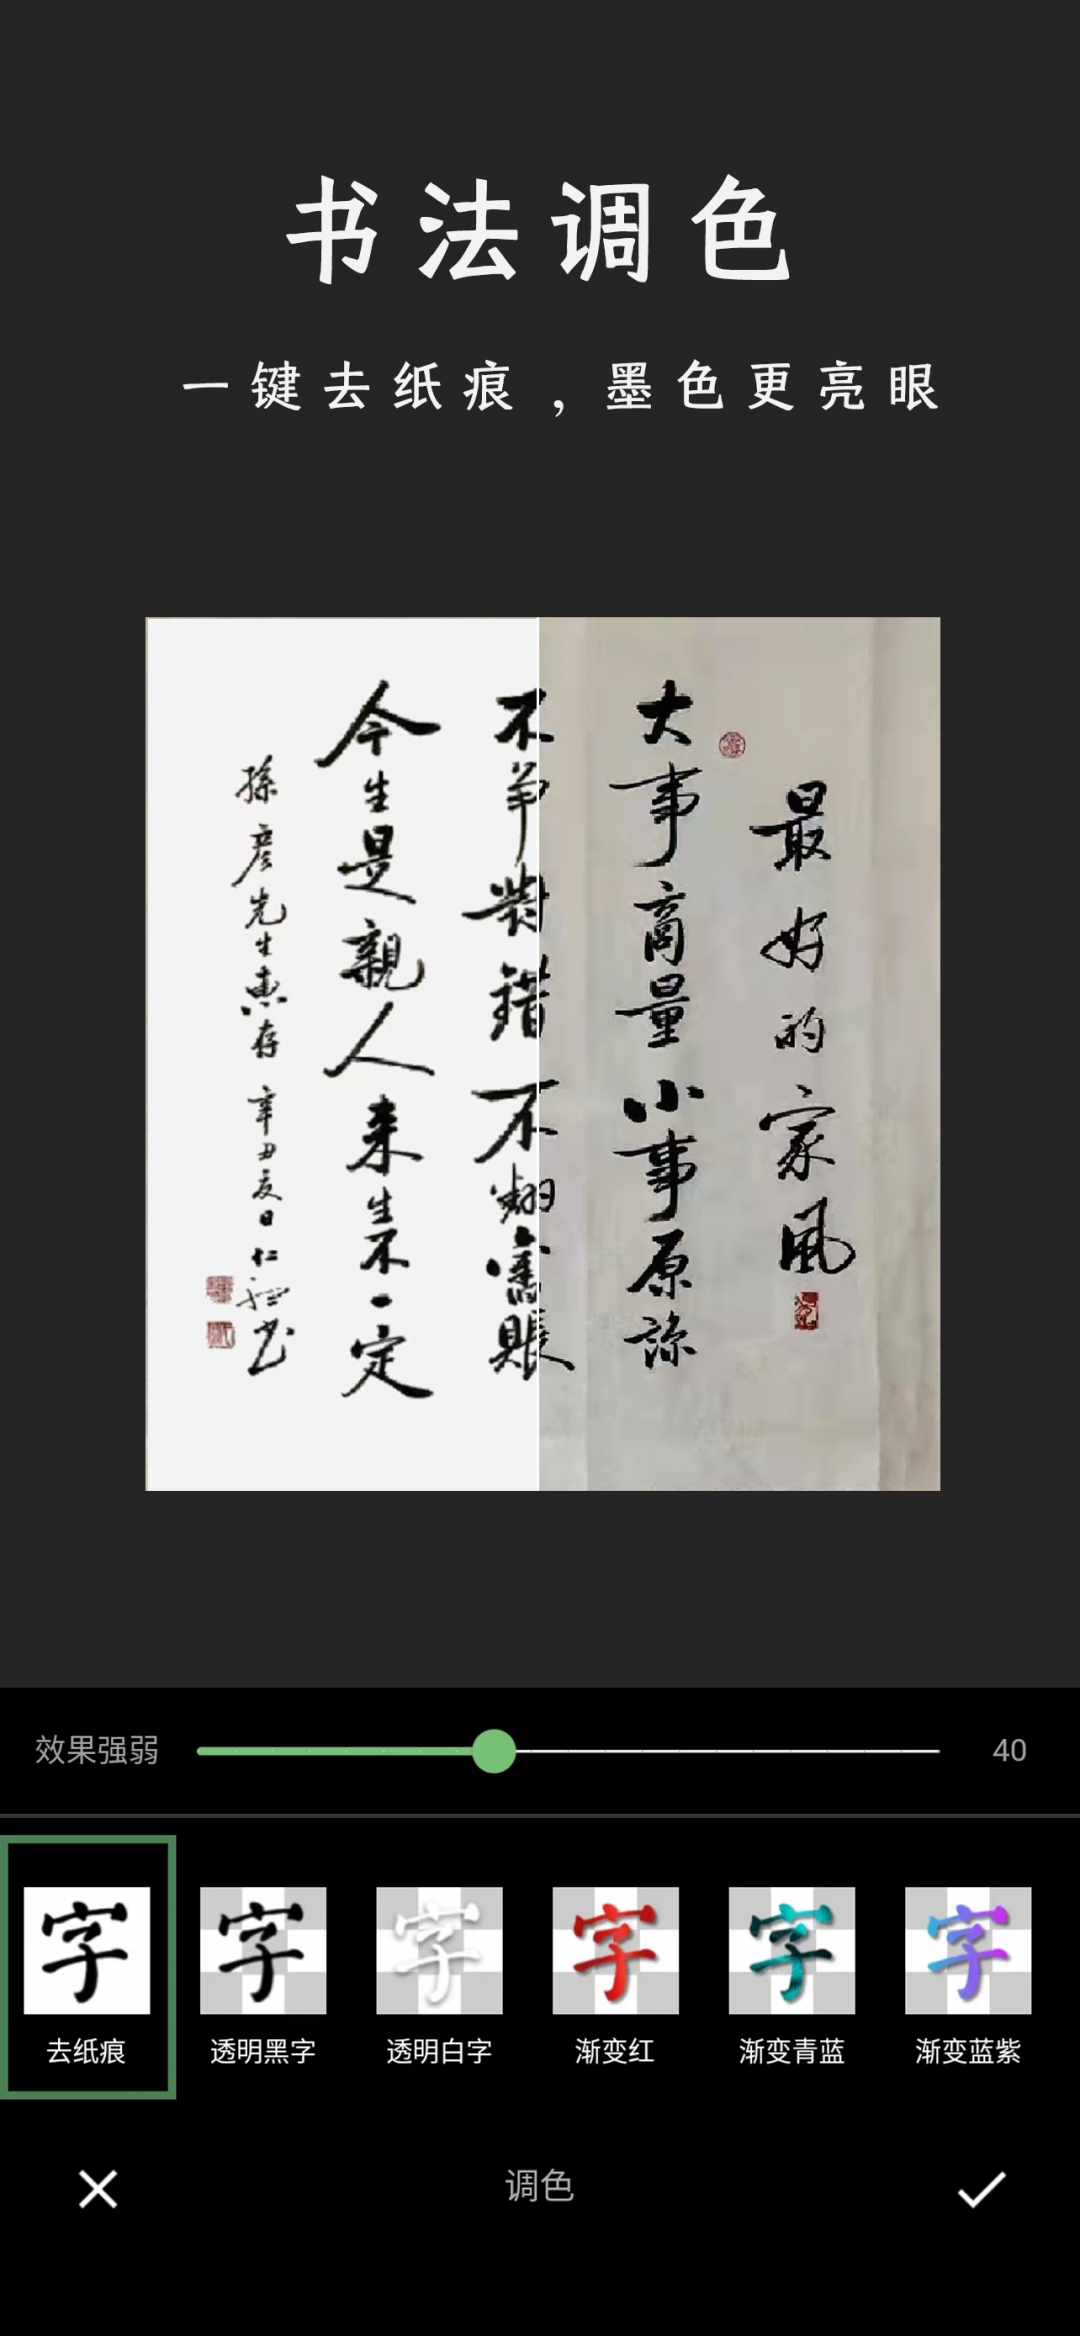 书法调色
一键去纸痕，墨色更亮眼
最好的家风
大事商量小事原谅
不争對错不翻舊賬
今生是親人来生不一定
孫彦先生惠存 辛丑夏日 仁 书
效果强弱 40
字 字 字 字 字 字
去纸痕 透明黑字 透明白字 渐变红 渐变青蓝 渐变蓝紫
调色